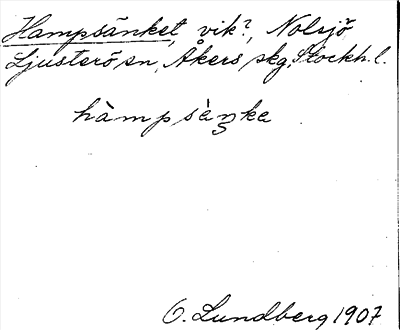 Hampsänket, vik?, Nolsjö
Ljusterö sn, Åkers skg, Stockh. l.
hàmpsèŋke
O. Lundberg 1907